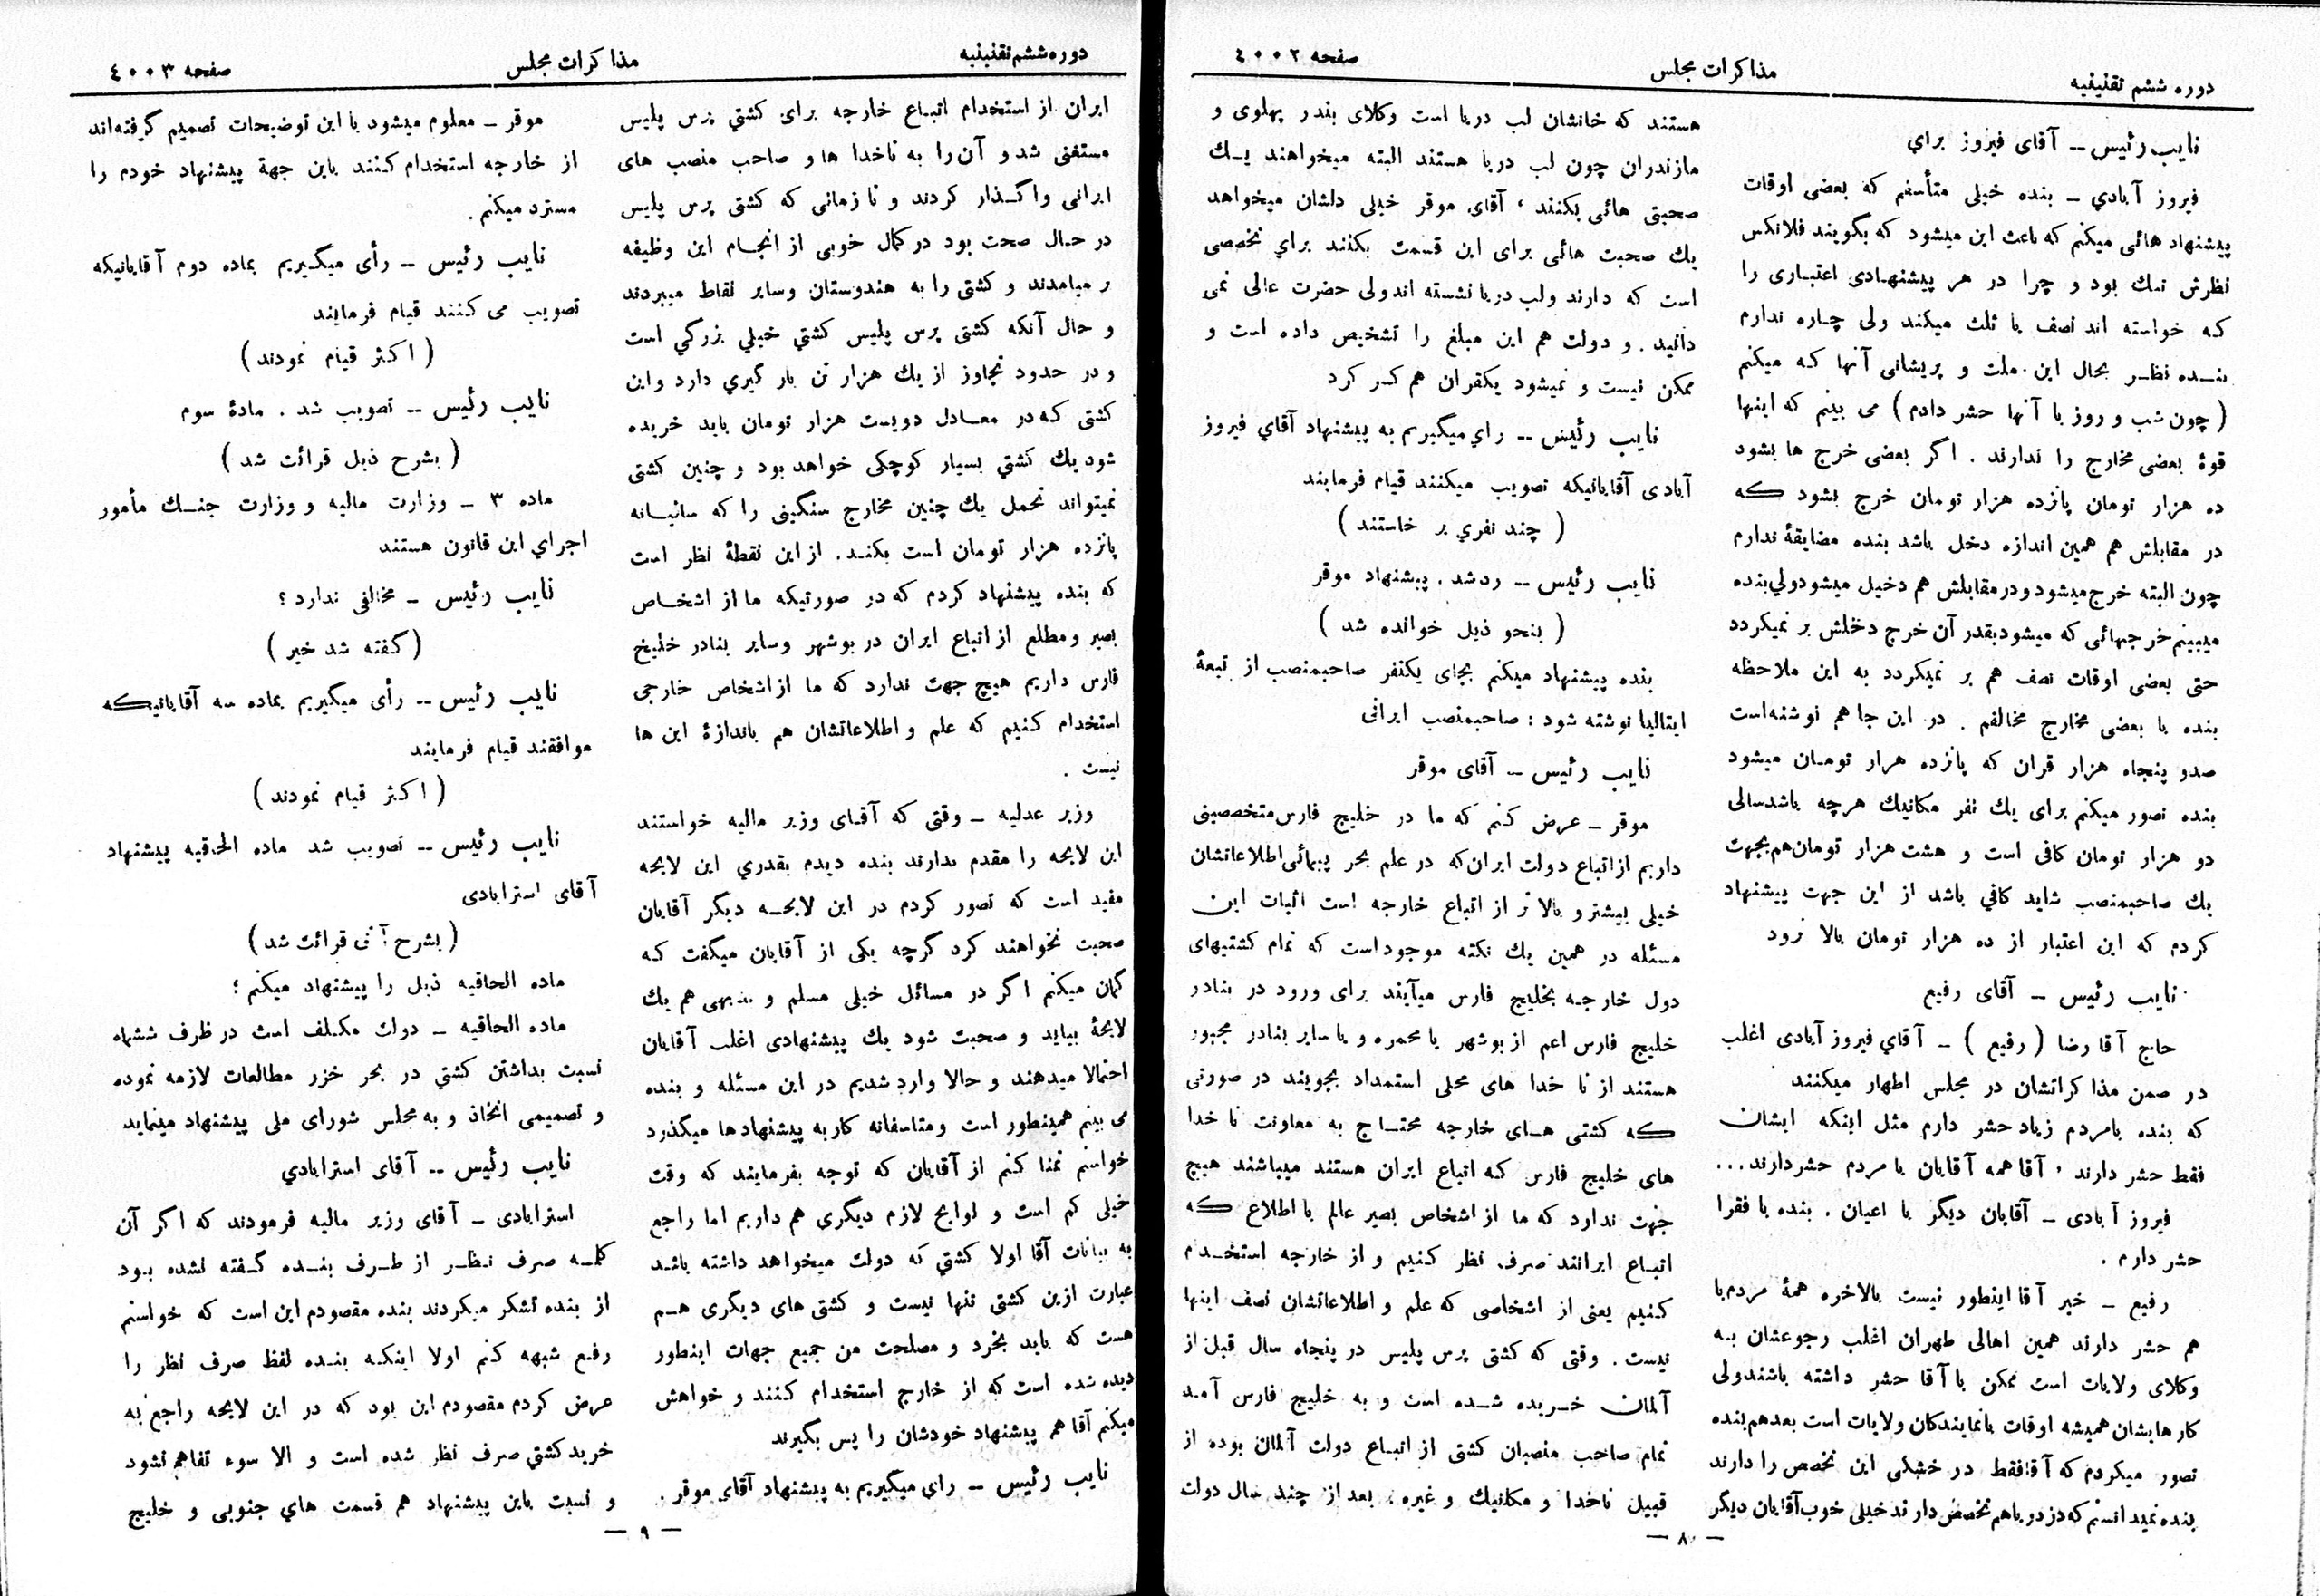 دوره ششم تقنینیه
مذاکرات مجلس
صفحه ۴۰۰۲
نایب رئیس -- آقای فیروز برای
فیروز آبادي - بنده خیلی متأسفم که بعضی اوقات
پیشنهاد هائی میکنم که باعث این میشود که بگویند فلانکس
نظرش تنك بود و چرا در هر پیشنهادی اعتباری را
که خواسته اند نصف یا ثلث میکند ولی چاره ندارم
بنده نظر بحال این ملت و پریشانی آنها که میکنم
( چون شب و روز با آنها حشر دارم ) می بینم که اینها
قوهٔ بعضی مخارج را ندارند . اگر بعضی خرج ها بشود
ده هزار تومان پانزده هزار تومان خرج بشود که
در مقابلش هم همین اندازه دخل باشد بنده مضایقهٔ ندارم
چون البته خرج میشود و در مقابلش هم دخیل میشود ولي بنده
میبینم خرجهائی که میشود بقدر آن خرج دخلش بر نمیگردد
حتی بعضی اوقات نصف هم بر نمیگردد به این ملاحظه
بنده با بعضی مخارج مخالفم . در این جا هم نوشته‌است
صدو پنجاه هزار قران که پانزده هزار تومان میشود
بنده تصور میکنم برای یك نفر مکانیك هرچه باشد سالی
دو هزار تومان کافی است و هشت هزار تومان هم بجهت
یك صاحبمنصب شاید کافي باشد از این جهت پیشنهاد
کردم که این اعتبار از ده هزار تومان بالا نرود
نایب رئیس - آقای رفیع
حاج آقا رضا ( رفیع ) - آقاي فیروز آبادی اغلب
در ضمن مذاکراتشان در مجلس اظهار میکنند
که بنده بامردم زیاد حشر دارم مثل اینکه ایشان
فقط حشر دارند ، آقا همه آقایان با مردم حشر دارند...
فیروز آبادی - آقایان دیگر با اعیان . بنده با فقرا
حشر دارم .
رفیع - خیر آقا اینطور نیست بالاخره همهٔ مردم با
هم حشر دارند همین اهالی طهران اغلب رجوعشان به
وکلای ولایات است ممکن با آقا حشر داشته باشند ولی
کار هایشان همیشه اوقات با نمایندگان ولایات است بعدهم بنده
تصور میکردم که آقا فقط در خشکی این تخصص را دارند
بنده نمیدانستم که در دریا هم تخصص دارند خیلی خوب آقایان دیگر
هستند که خانشان لب دریا است وکلای بندر پهلوی و
مازندران چون لب دریا هستند البته میخواهند یك
صحبتی هائی بکنند ، آقای موقر خیلی دلشان میخواهد
یك صحبت هائی برای این قسمت بکنند براي تخصصی
است که دارند ولب دریا نشسته اند ولی حضرت عالی نمی
دانید . و دولت هم این مبلغ را تشخیص داده است و
ممکن نیست و نمیشود یکقران هم کسر کرد
نایب رئیس -- راي میگیریم به پیشنهاد آقاي فیروز
آبادی آقایانیکه تصویب میکنند قیام فرمایند
( چند نفري بر خاستند )
نایب رئیس -- رد شد . پیشنهاد موقر
( بنحو ذیل خوانده شد )
بنده پیشنهاد میکنم بجای یکنفر صاحبمنصب از تبعهٔ
ایتالیا نوشته شود : صاحبمنصب ایرانی
نایب رئیس - آقای موقر
موقر - عرض کنم که ما در خلیج فارس متخصصینی
داریم از اتباع دولت ایران که در علم بحر پیمائی اطلاعاتشان
خیلی بیشتر و بالا تر از اتباع خارجه است اثبات این
مسئله در همین یك نکته موجود است که تمام کشتیهای
دول خارجه بخلیج فارس میآیند برای ورود در بنادر
خلیج فارس اعم از بوشهر یا محمره و یا سایر بنادر مجبور
هستند از نا خدا های محلی استمداد بجویند در صورتی
که کشتی های خارجه محتاج به معاونت نا خدا
های خلیج فارس که اتباع ایران هستند میباشند هیچ
جهت ندارد که ما از اشخاص بصیر عالم با اطلاع که
اتباع ایرانند صرف نظر کنیم و از خارجه استخدام
کنیم یعنی از اشخاصی که علم و اطلاعاتشان نصف اینها
نیست . وقتی که کشتی پرس پلیس در پنجاه سال قبل از
آلمان خریده شده است و به خلیج فارس آمد
تمام صاحب منصبان کشتی از اتباع دولت آلمان بوده از
قبیل ناخدا و مکانیك و غیره . بعد از چند سال دولت
- ۸ -
دوره ششم تقنینیه
مذاکرات مجلس
صفحه ۴۰۰۳
ایران از استخدام اتباع خارجه برای کشتي پرس پلیس
مستغنی شد و آن را به ناخدا ها و صاحب منصب های
ایرانی واگذار کردند و تا زمانی که کشتی پرس پلیس
در حال صحت بود در کمال خوبی از انجام این وظیفه
ر میامدند و کشتی را به هندوستان و سایر نقاط میبردند
و حال آنکه کشتی پرس پلیس کشتي خیلي بزرگي است
و در حدود تجاوز از یك هزار تن بار گیري دارد و این
کشتی که در معادل دویست هزار تومان باید خریده
شود یك کشتي بسیار کوچکی خواهد بود و چنین کشتی
نمیتواند تحمل یك چنین مخارج سنگینی را که سالیانه
پانزده هزار تومان است بکند . از این نقطهٔ نظر است
که بنده پیشنهاد کردم که در صورتیکه ما از اشخاص
بصیر و مطلع از اتباع ایران در بوشهر و سایر بنادر خلیج
فارس داریم هیچ جهت ندارد که ما از اشخاص خارجی
استخدام کنیم که علم و اطلاعاتشان هم باندازهٔ این ها
نیست .
وزیر عدلیه - وقتی که آقای وزیر مالیه خواستند
این لایحه را مقدم بدارند بنده دیدم بقدري این لایحه
مفید است که تصور کردم در این لایحه دیگر آقایان
صحبت نخواهند کرد گرچه یکی از آقایان میگفت که
گمان میکنم اگر در مسائل خیلی مسلم و بدیهی هم یك
لایحهٔ بیاید و صحبت شود یك پیشنهادی اغلب آقایان
احتمالا میدهند و حالا وارد شدیم در این مسئله و بنده
می بینم همینطور است و متاسفانه کار به پیشنهادها میگذرد
خواستم تمنا کنم از آقایان که توجه بفرمایند که وقت
خیلی کم است و لوایح لازم دیگری هم داریم اما راجع
به بیانات آقا اولا کشتي که دولت میخواهد داشته باشد
عبارت ازین کشتی تنها نیست و کشتی های دیگری هم
هست که باید بخرد و مصلحت من جمیع جهات اینطور
دیده شده است که از خارج استخدام کنند و خواهش
میکنم آقا هم پیشنهاد خودشان را پس بگیرند
نایب رئیس -- راي میگیریم به پیشنهاد آقای موقر .
موقر - معلوم میشود با این توضیحات تصمیم گرفته‌اند
از خارجه استخدام کنند باین جهة پیشنهاد خودم را
مسترد میکنم .
نایب رئیس -- رأی میگیریم بماده دوم آقایانیکه
تصویب می کنند قیام فرمایند
( اکثر قیام نمودند )
نایب رئیس -- تصویب شد . مادهٔ سوم
( بشرح ذیل قرائت شد )
ماده ۳ - وزارت مالیه و وزارت جنك مأمور
اجراي این قانون هستند
نایب رئیس - مخالفی ندارد ؟
( گفته شد خیر )
نایب رئیس -- رأی میگیریم بماده سه آقایانیکه
موافقند قیام فرمایند
( اکثر قیام نمودند )
نایب رئیس -- تصویب شد ماده الحاقیه پیشنهاد
آقای استرابادی
( بشرح آتی قرائت شد )
ماده الحاقیه ذیل را پیشنهاد میکنم ؛
ماده الحاقیه - دولت مکلف است در ظرف ششماه
نسبت بداشتن کشتي در بحر خزر مطالعات لازمه نموده
و تصمیمی اتخاذ و به مجلس شورای ملی پیشنهاد مینماید
نایب رئیس -- آقای استرابادي
استرابادی - آقای وزیر مالیه فرمودند که اگر آن
کلمه صرف نظر از طرف بنده گفته نشده بود
از بنده تشکر میکردند بنده مقصودم این است که خواستم
رفع شبهه کنم اولا اینکه بنده لفظ صرف نظر را
عرض کردم مقصودم این بود که در این لایحه راجع به
خرید کشتي صرف نظر شده است و الا سوء تفاهم نشود
و نسبت باین پیشنهاد هم قسمت هاي جنوبی و خلیج
- ۹ -